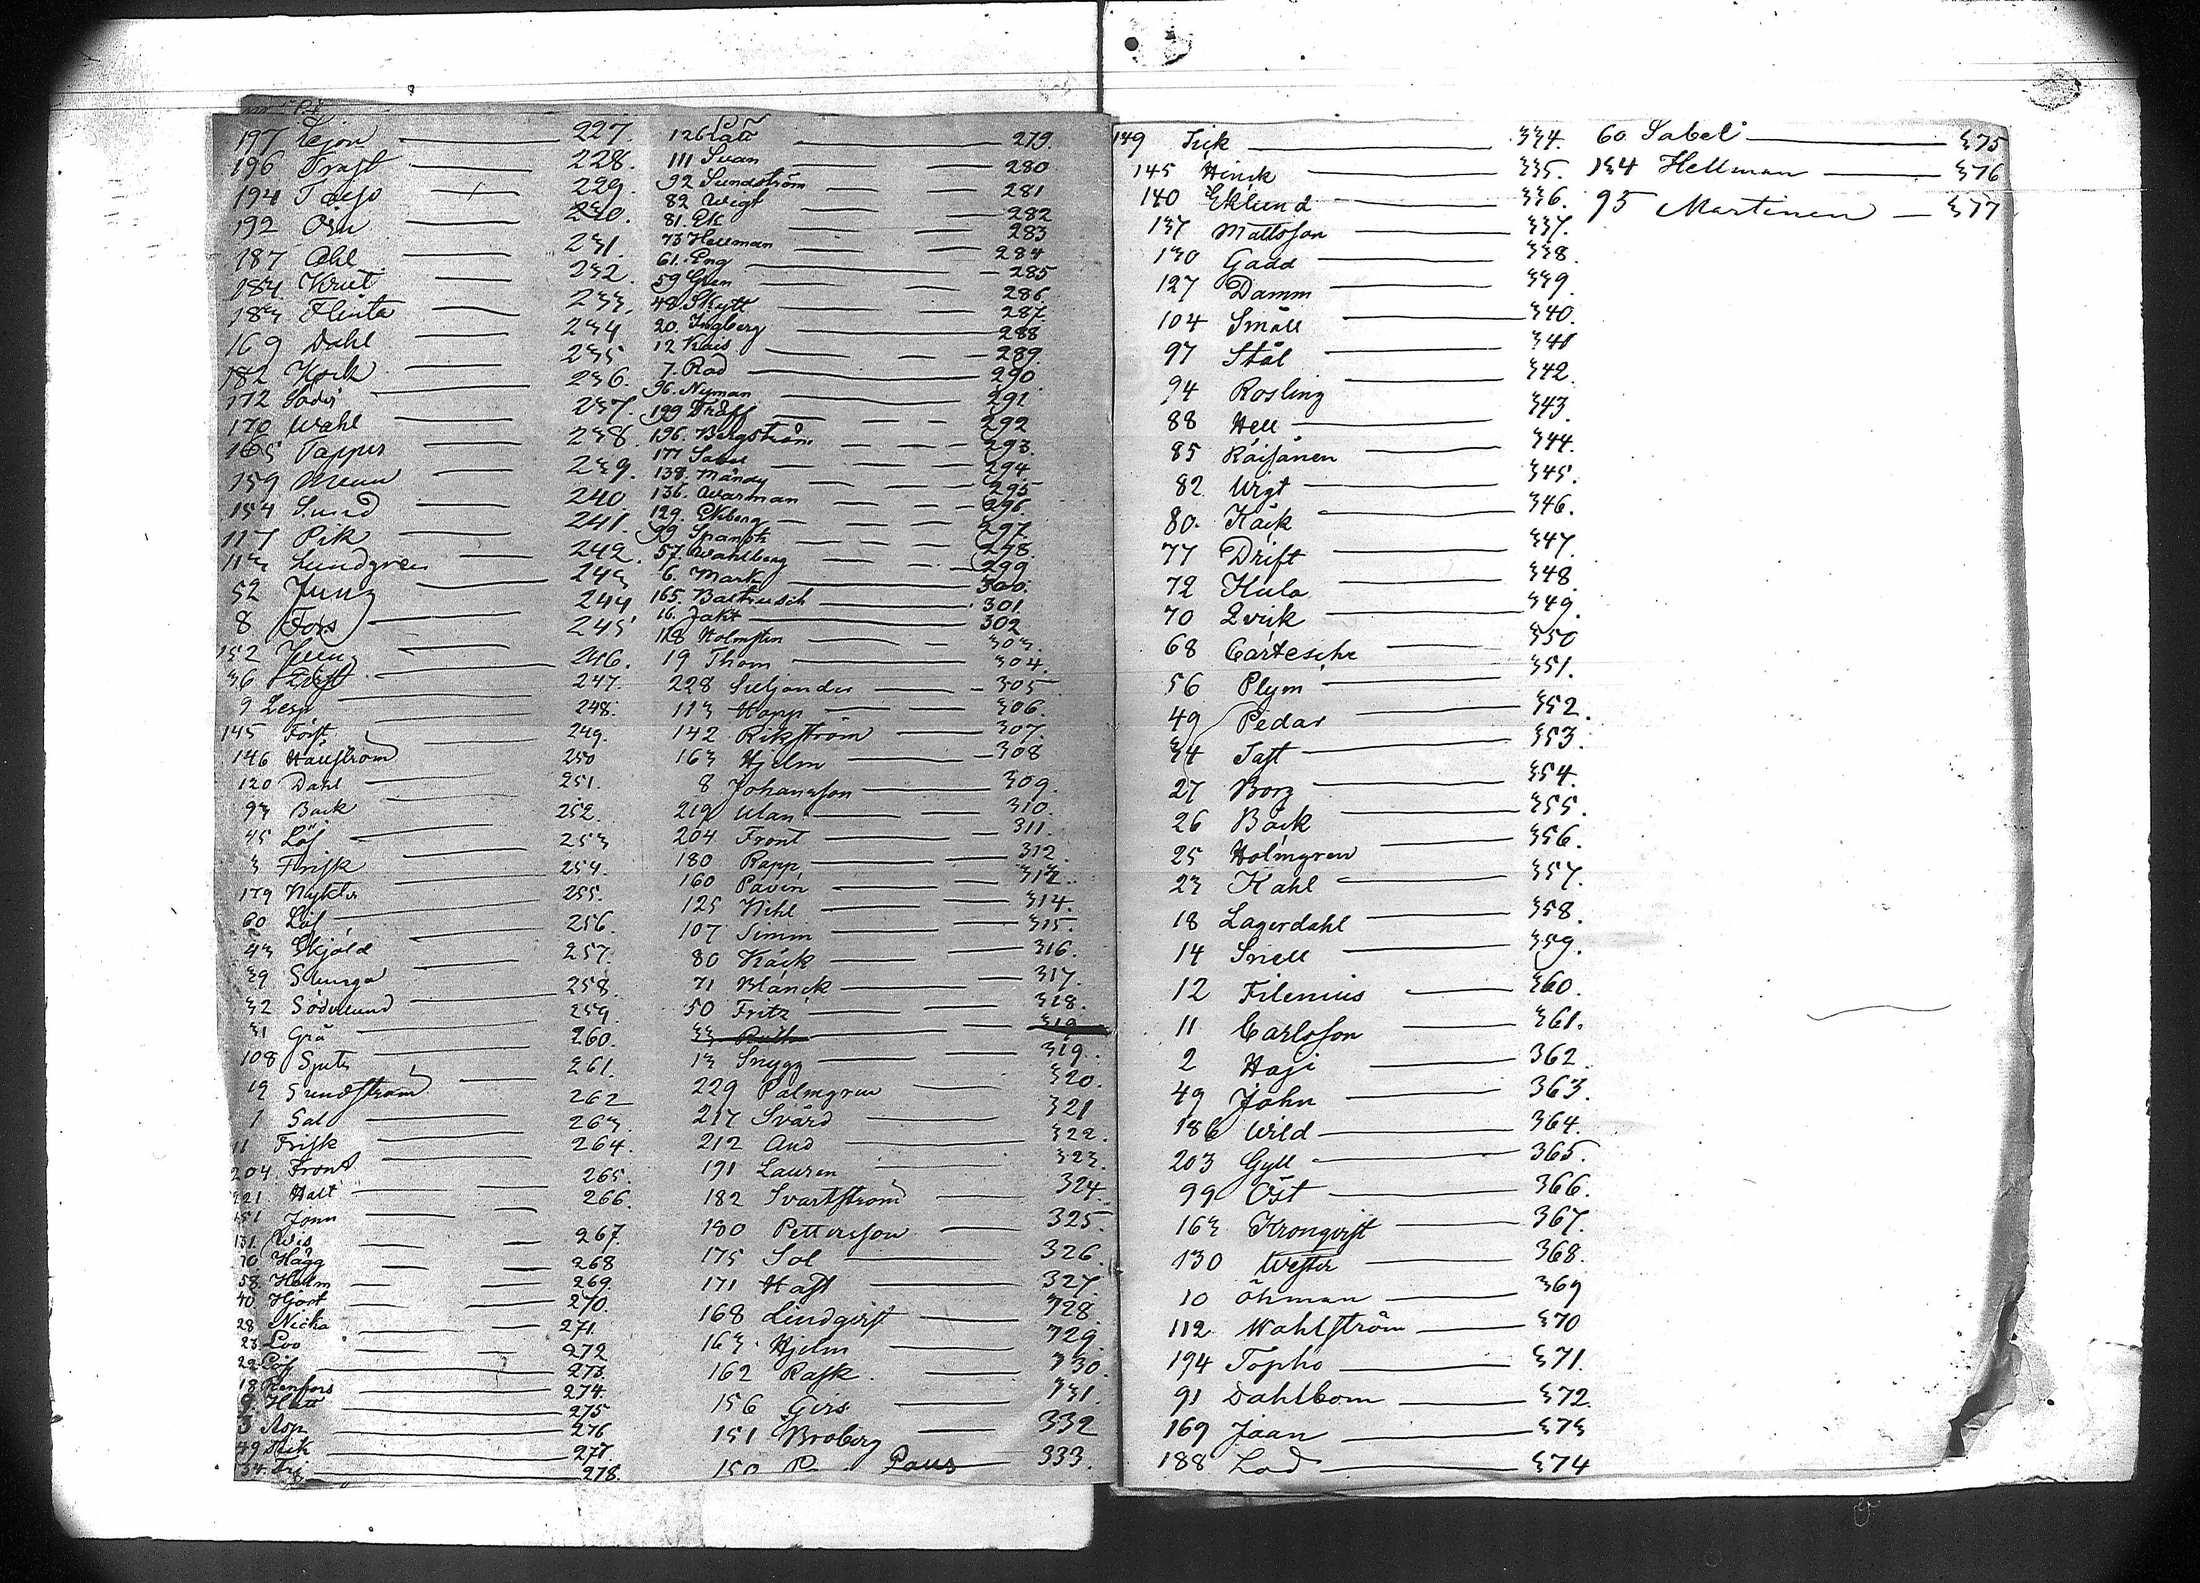 197 Lejon 227.
196 Trast 228.
194 229.
192 Örn 230.
187 Ahl 231.
184 Krut 232.
183 Flinta 233.
169 Dahl 234
182 Kork 235
172 236.
170 Wahl 237.
165 Tapper 238.
159 Menn 239.
154 Sund 240
117 Pik 241.
113 Lundgren 242.
52 Jung 243
8 Fors 244
152 245
36 246.
9 247.
145 Först 248.
146 249.
120 Dahl 250
93 Back 251.
45 Löf 252.
3 Frisk 253
179 254.
60 Löf 255.
43 Skjöld 256.
39 257.
32 Söderlund 258.
31 Grå 259.
108 260.
19 Sundström 261.
1 Sal 262
11 Frisk 263.
204 Front 264.
221 Halt 265.
151 266.
131. Wis 267.
70 Hägg 268
58 Holm 269.
40. Hjort 270.
28 Nicka 271.
23 Loo 272
22 Löf 273.
18 Renfors 274.
9. Hatt 275
3 Asp 276
49 277.
134. 278.
126 Lätt 279.
111 Svan 280
92 Sundström 281
82 Wigt 282
81. Ek 283
73 Hellman 284
61. Eng 285
59 Gren 286.
48 Skytt 287.
20. Ingberg 288
12 Rais 289.
7. Rad 290
96. Nyman 291
199 Träff 292
196. Bergström 293.
177 Sabel 294
138. Mändy 295
136. Warman 296.
129. Ekberg 297.
99 Spansk 298.
57. Wahlberg 299
6. Mark 300.
165. Baltrusch 301.
16. Jakt 302
128 Holmsten 303.
19 Thom 304.
228 Siljander 305
113 Hopp 306.
142 Rikström 307.
163 Hjelm 308
8 Johansson 309.
219 Ulan 310.
204 Front 311.
180 Rapp 312.
160 Pavin 313.
125 Kihl 314.
107 Simm 315.
80 Käck 316.
71 Blanck 317.
50 Fritz 318.
33 319
13 Snygg 319.
229 Palmgren 320.
217 Svärd 321
212 And 322.
191 Lauren 323.
182 Svartström 324.
180 Pettersson 325
175 Sol 326.
171 Hast 327.
168 Lindqvist 328.
163 Hjelm 329.
162 Rask 330.
156 Girs 331.
151 Broberg 332
150 P Paus 333.
149 Frik 334.
145 Hinrik 335.
140 Eklund 336.
137 Mattsson 337.
130 Gadd 338.
127 Damm 339.
104 Småll 340.
97 Stål 341
94 Rosling 342.
88 Hell 343
85 Räisänen 344.
82 Wigt 345.
80. Käck 346.
77 Drift 347.
72 Hula 348
70 Qvick 349.
68 Cartesche 350
56 Plym 351.
49 Pedar 352.
34 Taft 353.
27 Borg 354.
26 Bäck 355.
25 Holmgren 356.
23 Kahl 357.
18 Lagerdahl 358.
14 Snell 359.
12 Filenius 360.
11 Carlsson 361.
2 Haji 362.
49 John 363.
186 Wild 364.
203 Gyll 365.
99 Öst 366.
163 Kronqvist 367.
130 Wester 368.
10 Öhman 369
112 Wahlström 370
194 Topho 371.
91 Dahlbom 372.
169 Jaan 373
188 Lod 374
60 Sabel 375
134 Hellman 376
95 Martinen 377